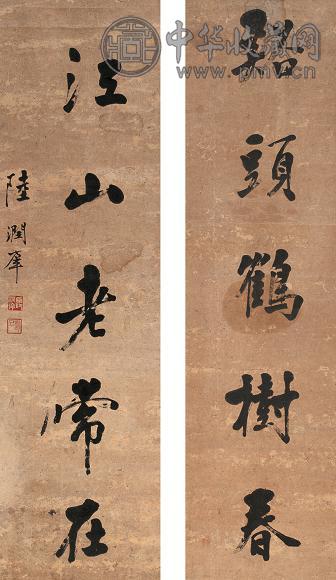 中华收藏网
頭鶴樹春
江山老常在
陸潤庠